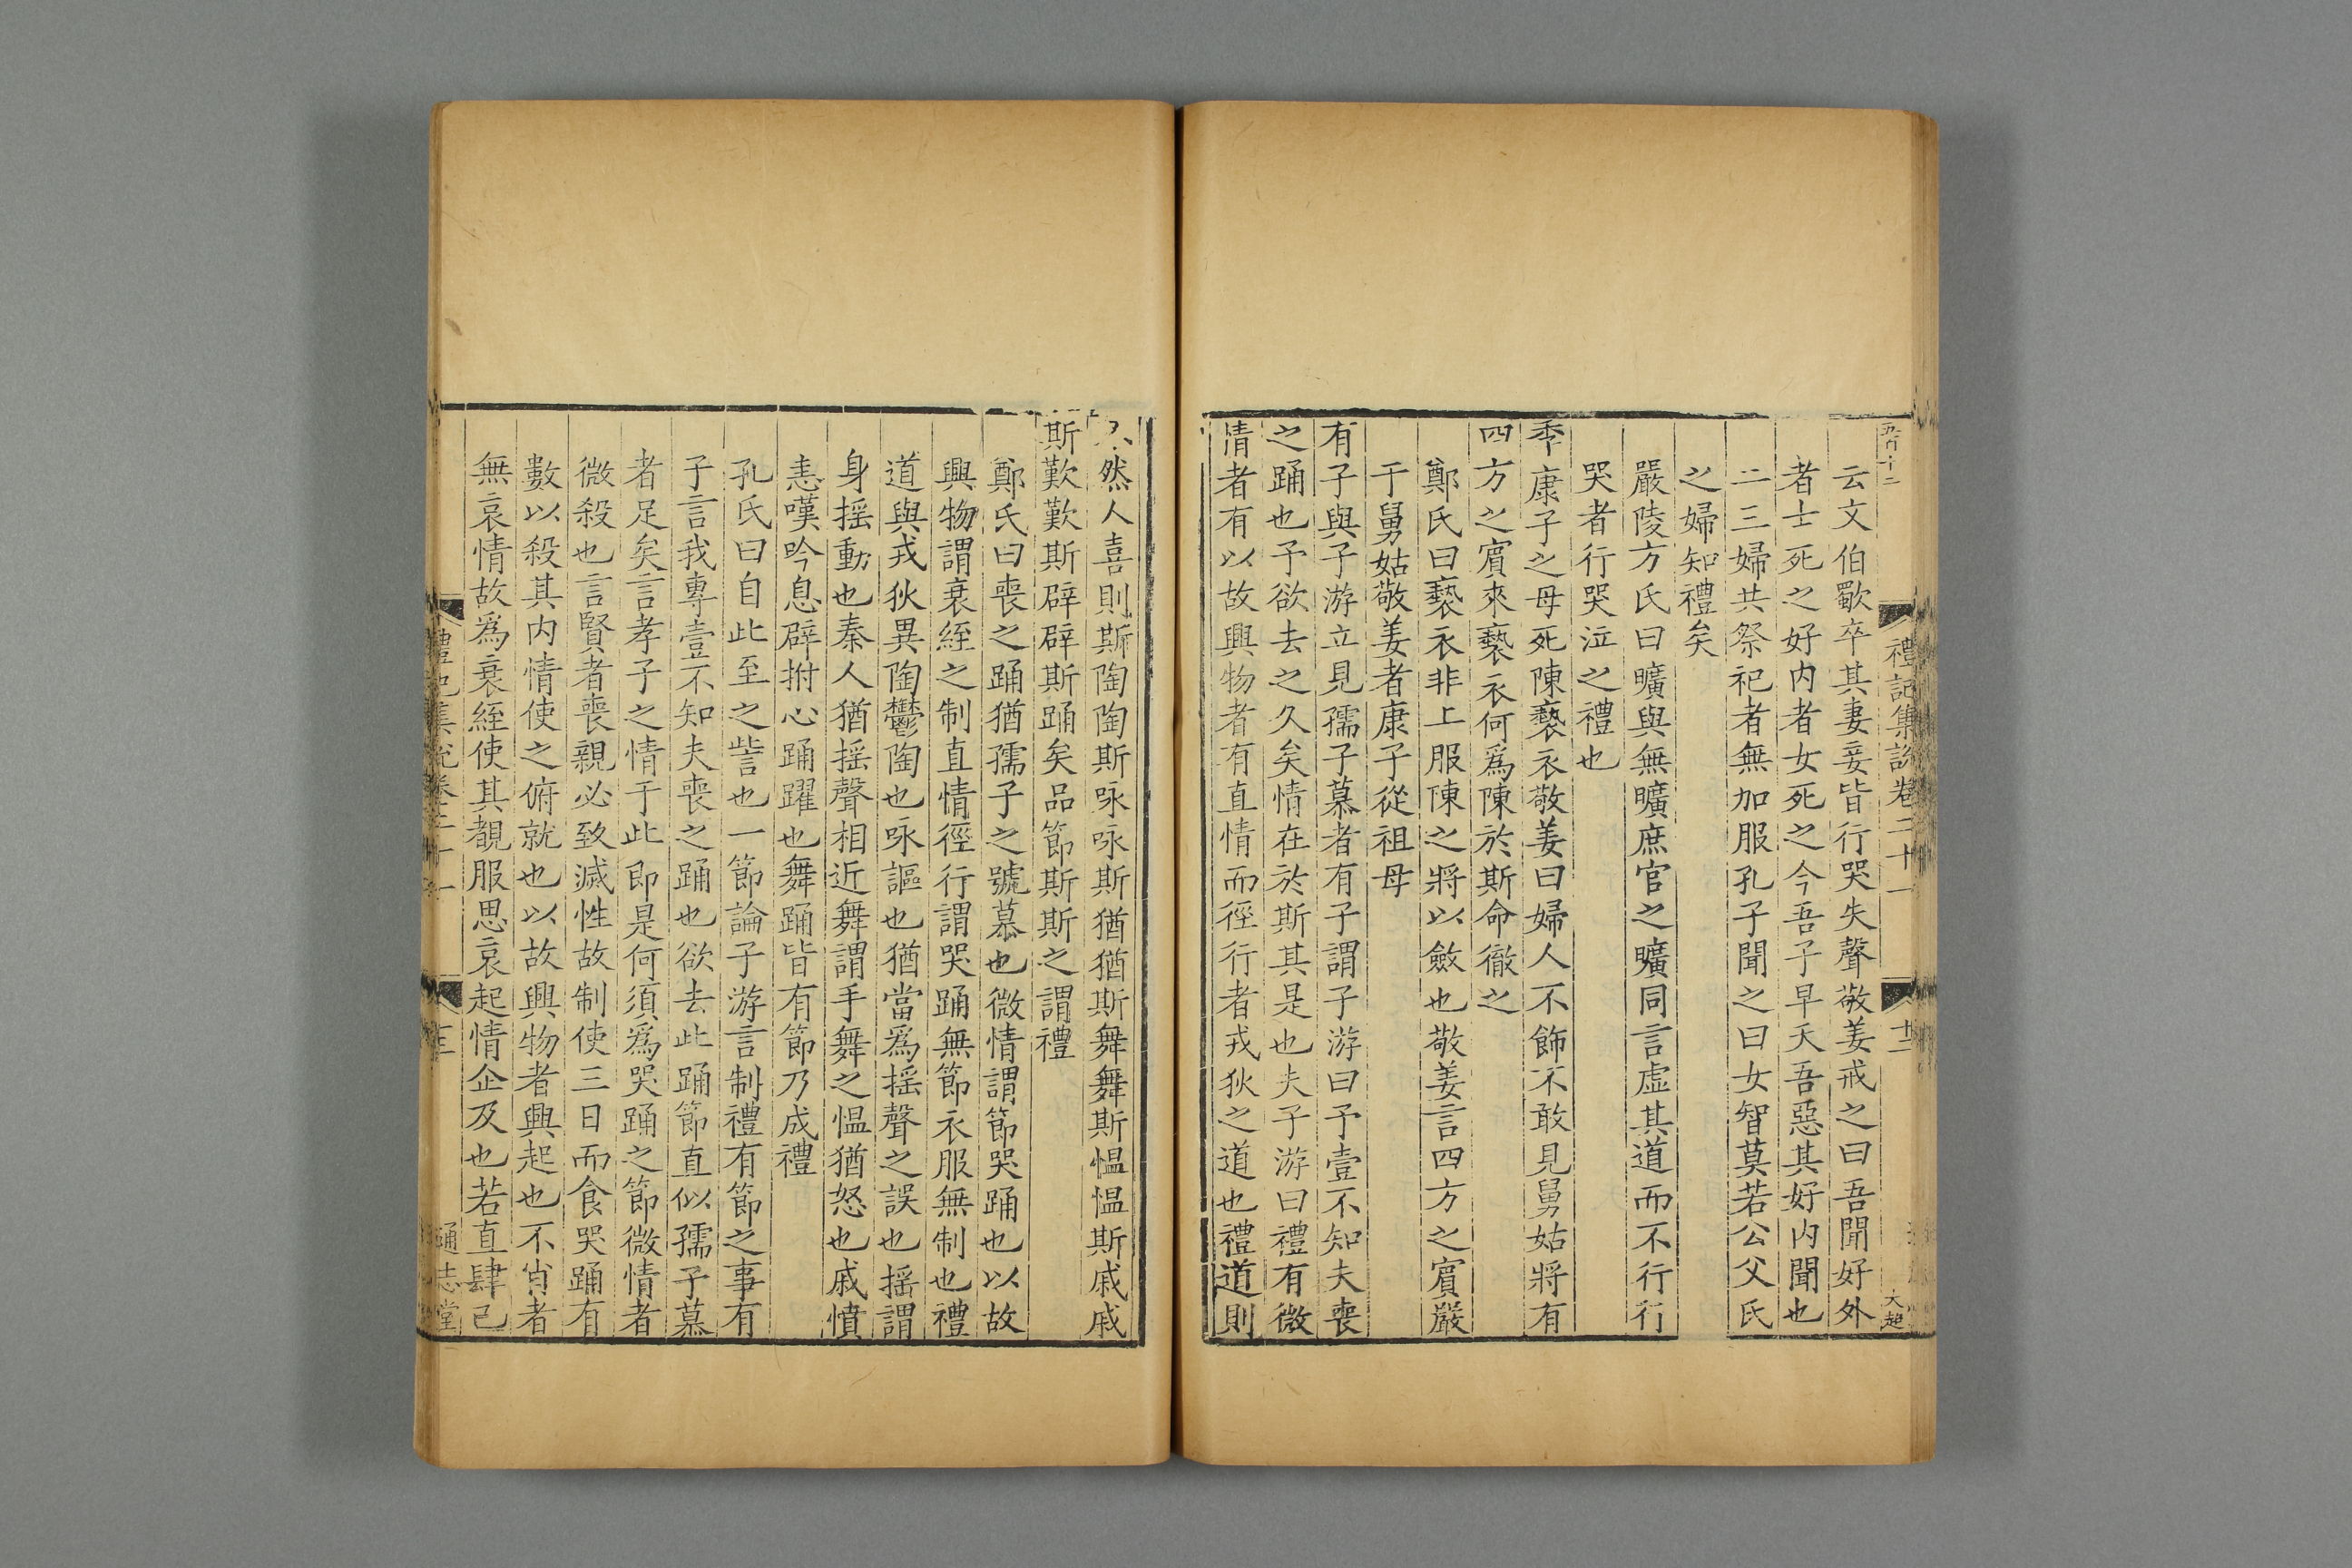 禮記集說卷二十一
十二
云文伯歜卒其妻妾皆行哭失聲敬姜戒之曰吾聞好外
者士死之好内者女死之今吾子早夭吾惡其好内聞也
二三婦共祭祀者無加服孔子聞之曰女智莫若公父氏
之婦知禮矣
嚴陵方氏曰曠與無曠庶官之曠同言虛其道而不行行
哭者行哭泣之禮也
季康子之母死陳褻衣敬姜曰婦人不飾不敢見舅姑將有
四方之賓來褻衣何爲陳於斯命徹之
鄭氏曰褻衣非上服陳之將以斂也敬姜言四方之賓嚴
于舅姑敬姜者康子從祖母
有子與子游立見孺子慕者有子謂子游曰予壹不知夫喪
之踊也予欲去之久矣情在於斯其是也夫子游曰禮有微
情者有以故興物者有直情而徑行者戎狄之道也禮道則
然人喜則斯陶陶斯咏咏斯猶猶斯舞舞斯愠愠斯戚戚
斯歎歎斯辟辟斯踊矣品節斯斯之謂禮
鄭氏曰喪之踊猶孺子之號慕也微情謂節哭踊也以故
興物謂衰絰之制直情徑行謂哭踊無節衣服無制也禮
道與戎狄異陶鬱陶也咏謳也猶當爲搖聲之誤也搖謂
身搖動也秦人猶搖聲相近舞謂手舞之愠猶怒也戚憤
恚嘆吟息辟拊心踊躍也舞踊皆有節乃成禮
孔氏曰自此至之訾也一節論子游言制禮有節之事有
子言我專壹不知夫喪之踊也欲去此踊節直似孺子慕
者足矣言孝子之情于此即是何須爲哭踊之節微情者
微殺也言賢者喪親必致滅性故制使三日而食哭踊有
數以殺其内情使之俯就也以故興物者興起也不肖者
無哀情故爲衰絰使其覩服思哀起情企及也若直肆己
禮記集說卷二十一
十三
通志堂